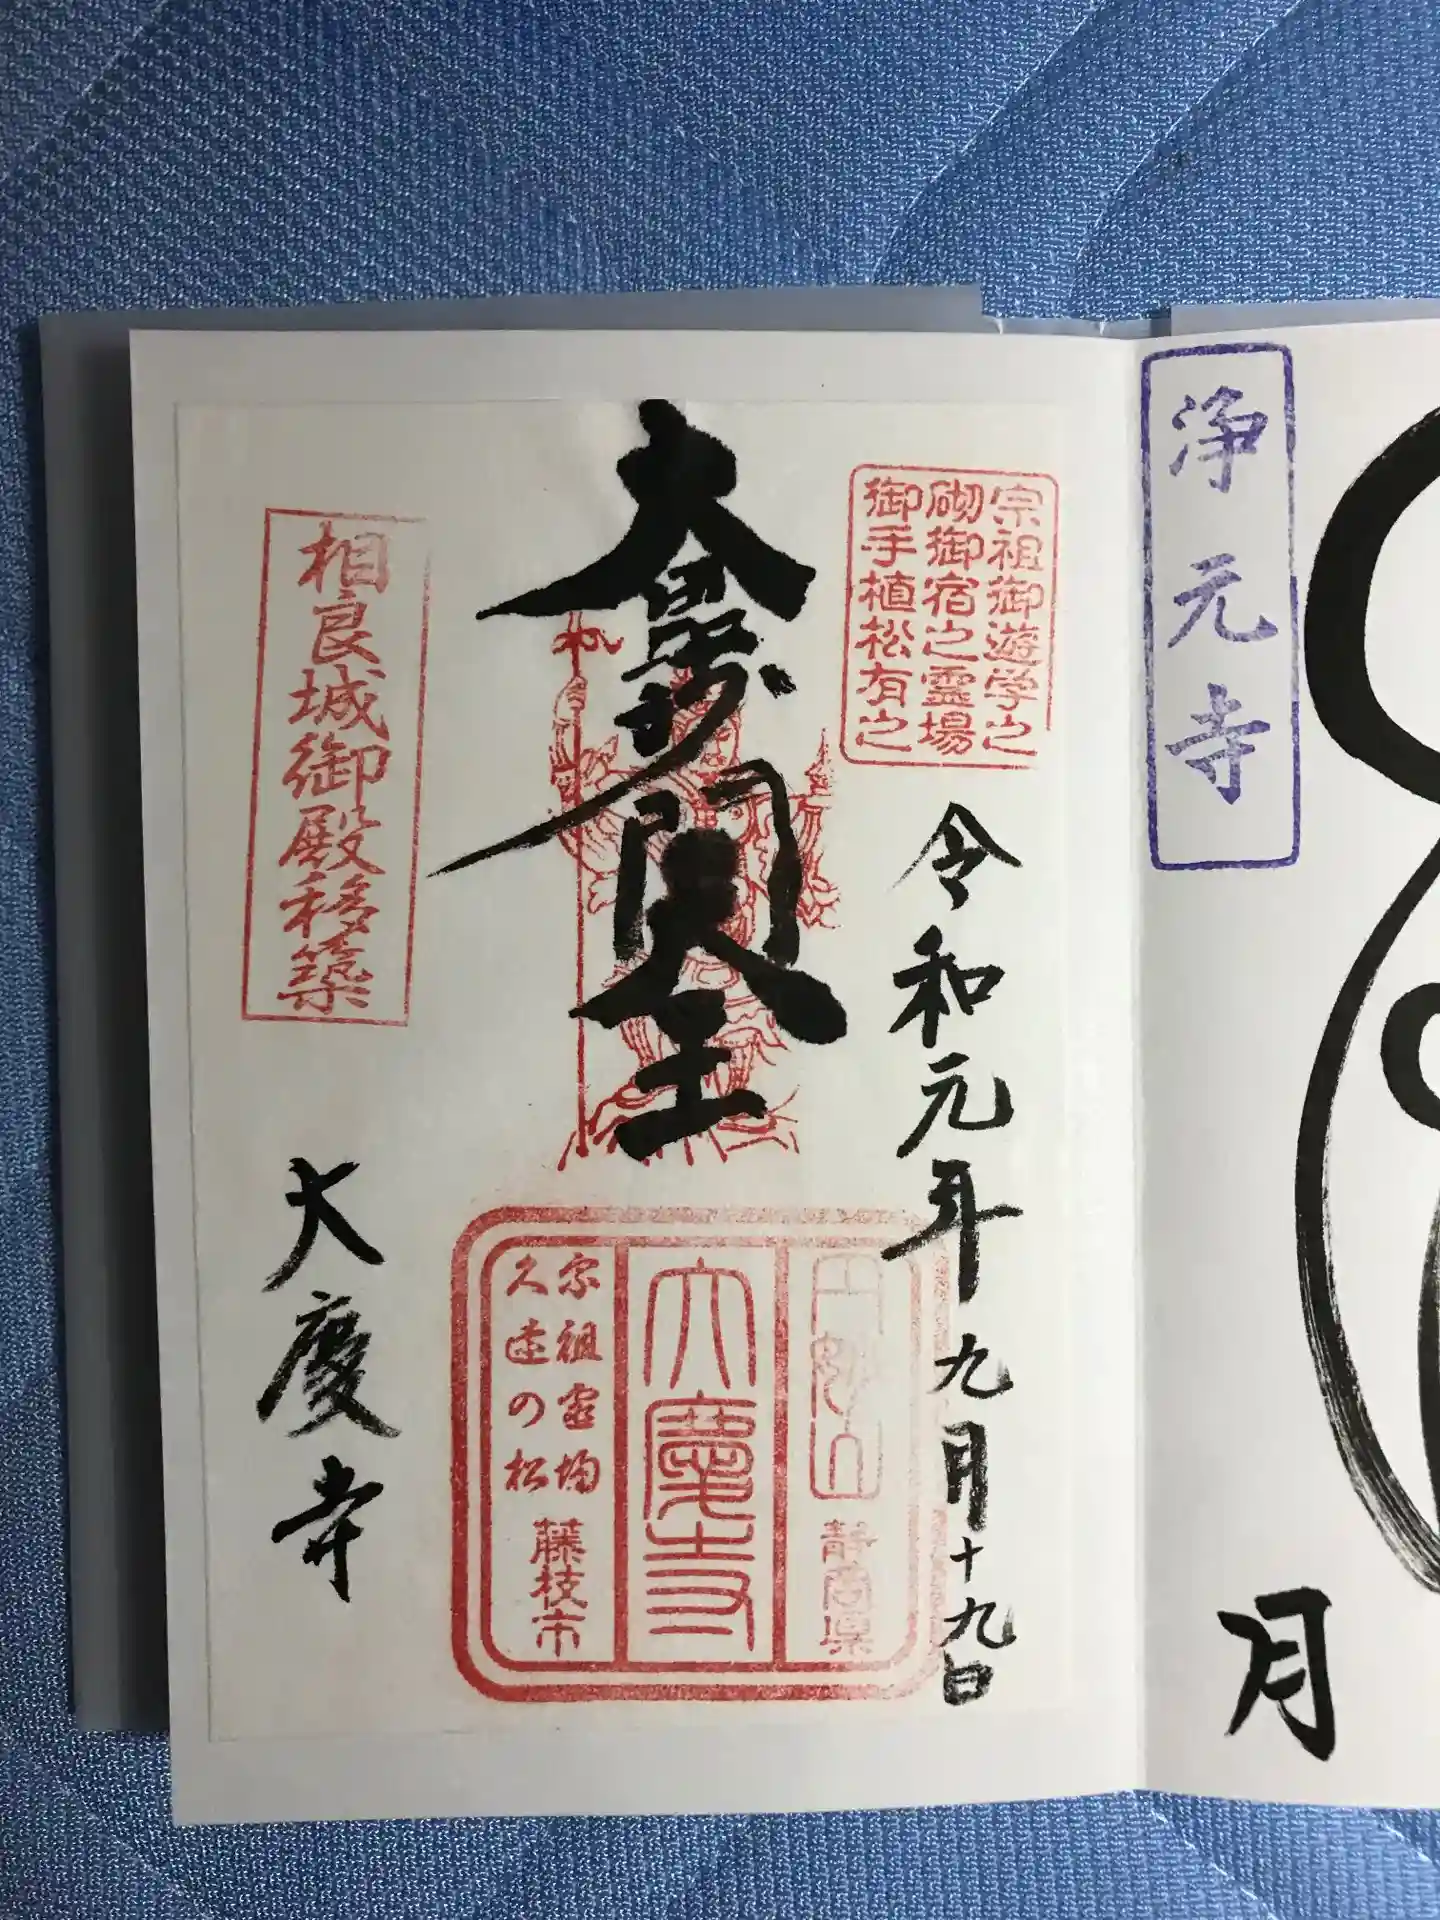 浄元寺
月
宗祖御遊学之
砌御宿之霊場
御手植松有之
令和元年九月十九日
大毘沙門天王
円妙山
静岡県
大慶寺
宗祖霊場
久遠の松
藤枝市
相良城御殿移築
大慶寺